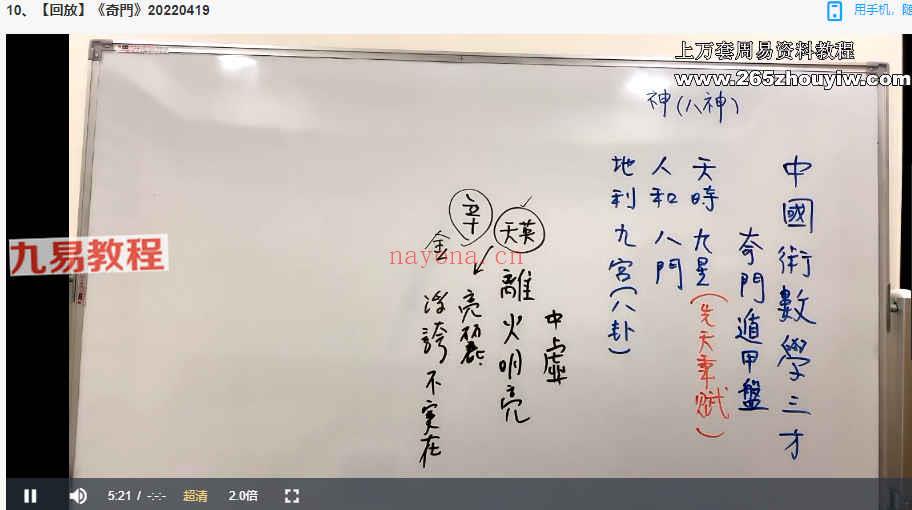 10、【回放】《奇門》20220419
用手机，随
上万套周易资料教程
www.265zhouyiw.com
神(八神)
中國術數學三才
奇門遁甲盤
天時 九星(先天秉賦)
人和 八門
地利 九宮(八卦)
中虛
天英 離火明亮
辛 亮麗
金 浮誇不实在
九易教程
nayona.cn
5:21 / -:-:- 超清 2.0倍